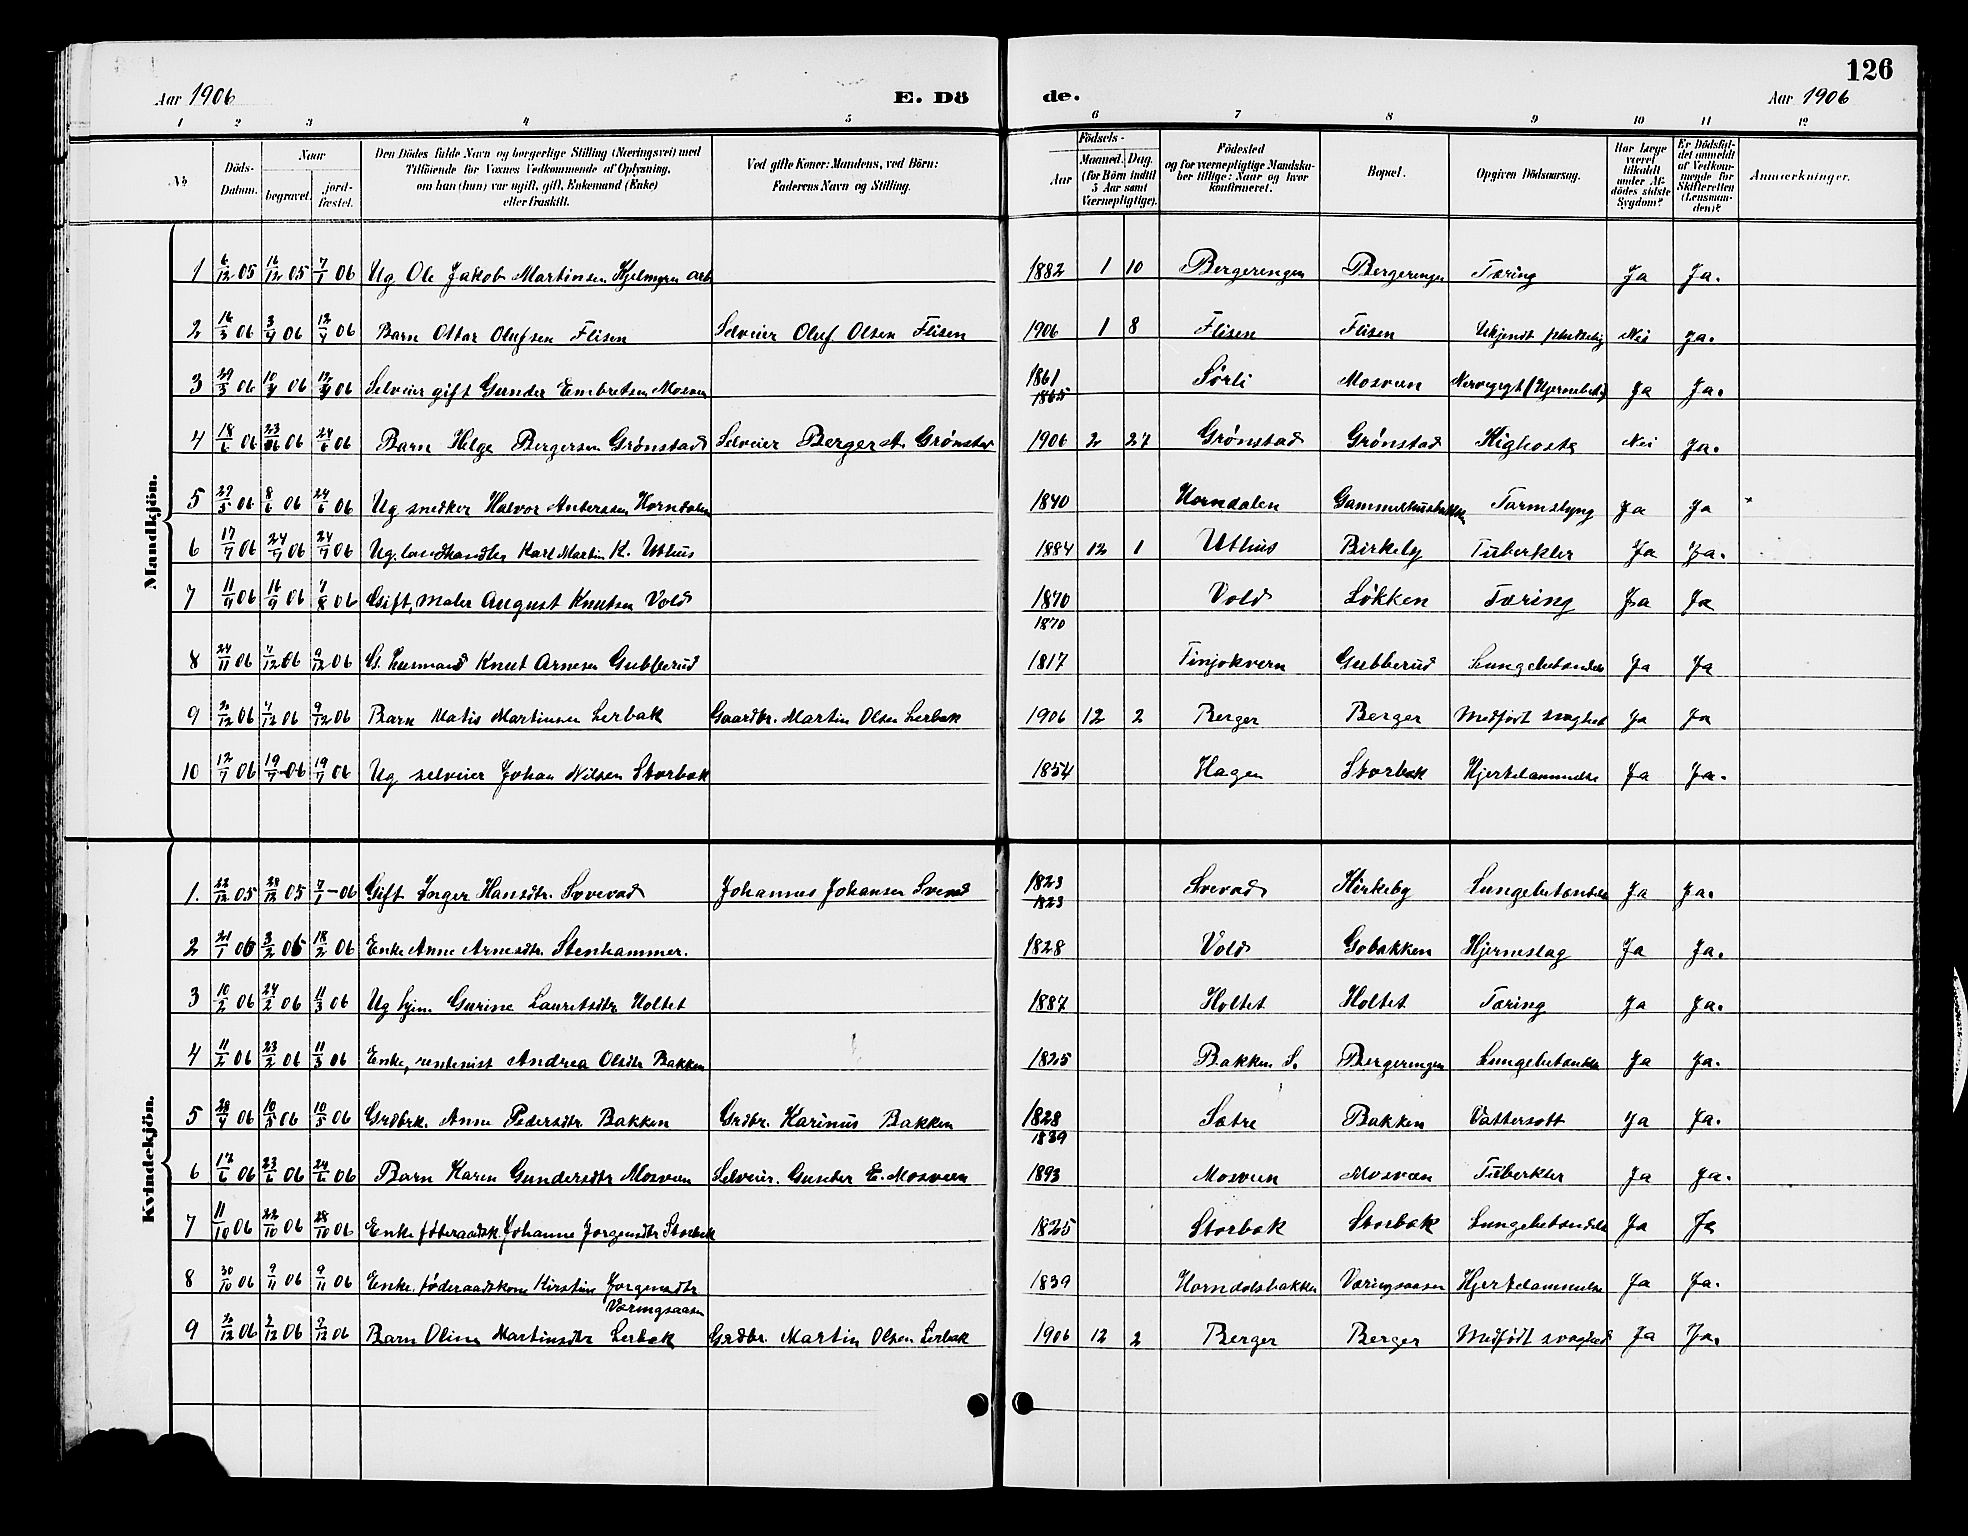 126
Aar 1906 E. Dö de. Aar 1906
1 2 3 4 5 6 7 8 9 10 11 12
No. Döds-Datum. Naar begravet. jordfæstet. Den Dödes fulde Navn og borgerlige Stilling (Næringsvei) med Tilföiende for Voxnes Vedkommende af Oplysning, om han (hun) var ugift, gift, Enkemand (Enke) eller fraskilt. Ved gifte Koner: Mandens, ved Börn: Faderens Navn og Stilling. Födsels- Aar Maaned. Dag. (for Börn indtil 5 Aar samt Værnepligtige). Födested og for værnepligtige Mandskaber tillige: Naar og hvor konfirmeret. Bopæl. Opgiven Dödsaarsag. Har Læge været tilkaldt under Afdödes sidste Sygdom? Er Dödsfaldet anmeldt af Vedkommende for Skifteretten (Lensmanden)? Anmærkninger.
Mandkjön.
1 6/12 05 16/12 05 7/1 06 Ug. Ole Jakob Martinsen Kjelmyren arb 1882 1 10 Bergerengen Bergerengen Tæring Ja Ja.
2 16/3 06 3/4 06 12/4 06 Barn Ottar Olufsen Flisen Selveier Oluf Olsen Flisen 1906 1 8 Flisen Flisen Ukjendt pludselig Nei Ja.
3 29/3 06 10/4 06 12/4 06 Selveier gift Gunder Embretsen Mosveen 1861 1865 Sörli Mosveen Ja Ja.
4 18/6 06 23/6 06 24/6 06 Barn Helge Bergersen Grønstad Selveier Berger A. Grønstad 1906 2 27 Grønstad Grønstad Kighoste Nei Ja.
5 29/5 06 8/6 06 24/6 06 Ug. snedker Halvor Anderssen Horndalen 1840 Horndalen Gammelhusbakken Tarmslyng Ja Ja
6 17/7 06 24/7 06 24/7 06 Ug. landhandler Karl Martin K. Uthus 1884 12 1 Uthus Birkeby Tuberkler Ja Ja.
7 11/9 06 16/9 06 Gift, maler August Knutsen Vold 1870 1870 Vold Løkken Tæring Ja Ja
8 24/11 06 7/12 06 9/12 06 G. husmand Knut Arnesen Gubberud 1817 Gubberud Lungebetændelse Ja Ja
9 2/12 06 7/12 06 9/12 06 Barn Matis Martinsen Lerbak Gaardbr. Martin Olsen Lerbak 1906 12 2 Berger Berger Medfödt svaghed Ja Ja
10 12/7 06 19/7 06 19/7 06 Ug. selveier Johan Nilsen Storbak 1854 Hagen Storbak Hjertelammelse Ja Ja.
Kvindekjön.
1. 22/12 05 28/12 05 7/1 06 Gift Inger Hansdtr. Svevad Johannes Johansen Svevad 1823 1823 Svevad Kirkeby Lungebetændelse Ja Ja.
2 21/1 06 3/2 06 18/2 06 Enke Anne Arnesdtr. Stenhammer. 1828 Vold Gobakken Hjerneslag Ja Ja.
3 10/2 06 24/2 06 11/3 06 Ug. hjm. Gurine Lauritsdtr Holtet 1887 Holtet Holtet Tæring Ja Ja.
4 11/2 06 23/2 06 11/3 06 Enke, rentenist Andrea Olsdtr Bakken 1825 Bakken S. Bergeringen Lungebetændelse Ja Ja.
5 28/4 06 10/5 06 10/5 06 Grdbrk. Anne Pedersdtr Bakken Grdbr. Karinus Bakken 1828 1839 Sætre Bakken Vattersott Ja Ja.
6 17/6 06 23/6 06 24/6 06 Barn Karen Gundersdtr Mosveen Selveier. Gunder E. Mosveen 1893 Mosveen Mosveen Tuberkler Ja Ja.
7 11/10 06 22/10 06 28/10 06 Enke föderaadsk. Johanne Jorgensdtr Storbak 1825 Storbak Storbak Lungebetændelse Ja Ja
8 30/10 06 9/11 06 9/11 06 Enke. föderaadskone Kirstine Jorgensdtr 1839 Horndalsbakken Væringsaasen Hjertelammelse Ja Ja.
Væringsaasen
9 2/12 06 7/12 06 9/12 06 Barn Oline Martinsdtr Lerbak Grdbr. Martin Olsen Lerbak 1906 12 2 Berger Berger Medfödt svaghed Ja Ja.